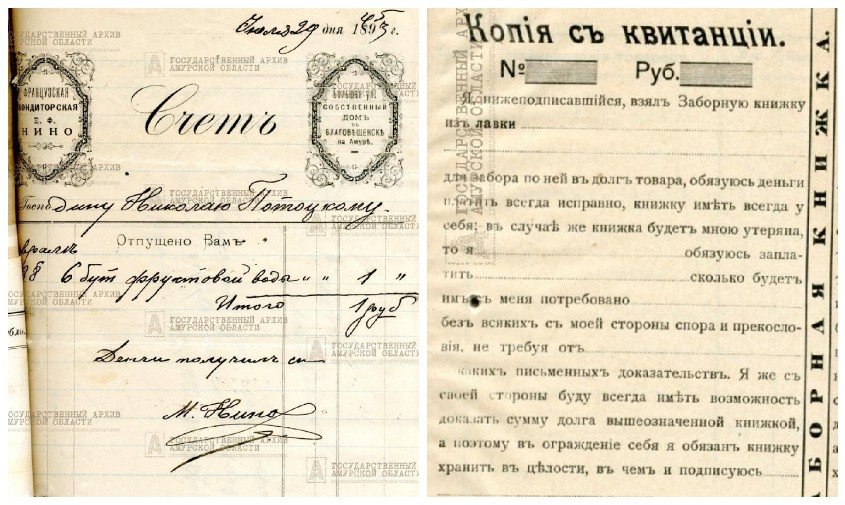 Іюля 29 дня 1893 г.
ФРАНЦУЗСКАЯ
КОНДИТОРСКАЯ
Е. Ф.
НИНО
Счетъ
Большая ул.
СОБСТВЕННЫЙ
ДОМЪ
въ
БЛАГОВѢЩЕНСКѢ
на Амурѣ.
Господину Николаю Потоцкому.
Отпущено Вамъ
28 6 бут фруктовой воды " " 1 "
Итого 1 руб
Деньги получилъ
М. Нино
ГОСУДАРСТВЕННЫЙ АРХИВ
АМУРСКОЙ ОБЛАСТИ
Копія съ квитанціи.
№ Руб.
Я, нижеподписавшійся, взялъ Заборную книжку
изъ лавки
для забора по ней въ долгъ товара, обязуюсь деньги
платить всегда исправно, книжку имѣть всегда у
себя; въ случаѣ же книжка будетъ мною утеряна,
то я обязуюсь запла-
тить сколько будетъ
имъ съ меня потребовано
безъ всякихъ съ моей стороны спора и прекосло-
вія, не требуя отъ
какихъ письменныхъ доказательствъ. Я же съ
своей стороны буду всегда имѣть возможность
доказать сумму долга вышеозначенной книжкой,
а поэтому въ огражденіе себя я обязанъ книжку
хранить въ цѣлости, въ чемъ и подписуюсь
ЗАБОРНАЯ КНИЖКА.